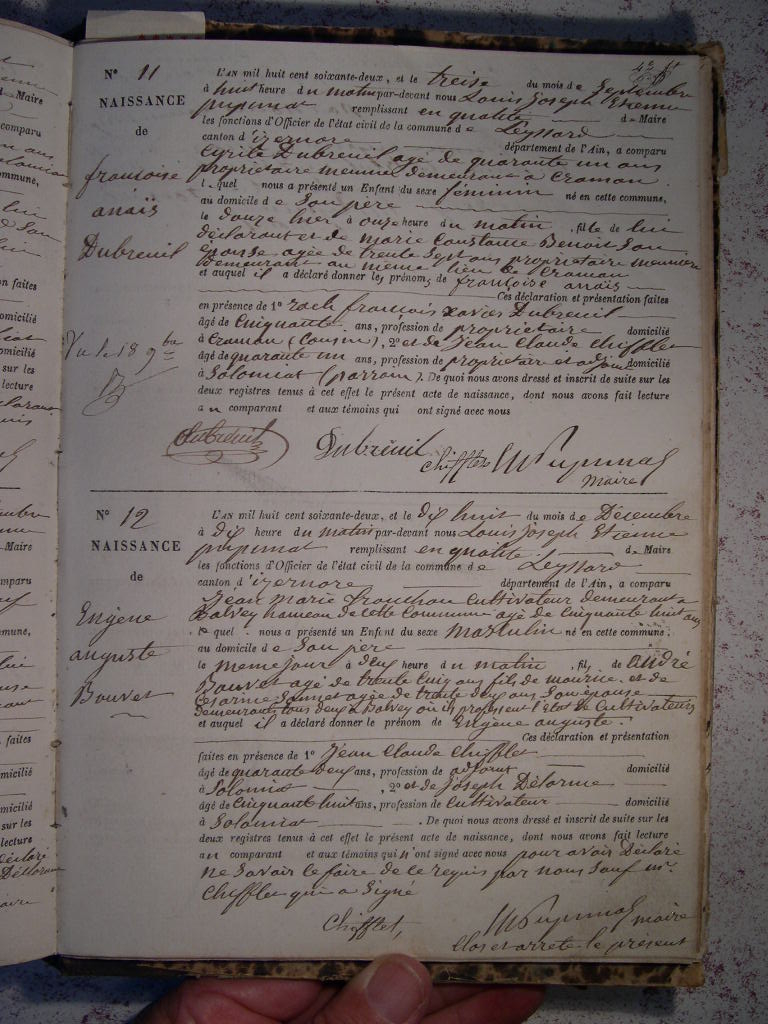 N° 11
NAISSANCE
de
françoise
anaïs
Dubreuil
L'AN mil huit cent soixante-deux, et le treise du mois de Septembre
à huit heure du matin par-devant nous Louis Joseph Etienne
pupunat remplissant en qualité de Maire
les fonctions d'Officier de l'état civil de la commune de Leyssard
canton d'izernore département de l'Ain, a comparu
Cyrile Dubreuil agé de quarante un ans
propriétaire meunier demeurant à Craman.
lequel nous a présenté un Enfant du sexe féminin né en cette commune,
au domicile de Son père
le douze hier à onze heure du matin, fille de lui
déclarant et de marie Constance Benoit Son
épouse agée de trente Sept ans propriétaire meunière
demeurant au même lieu de Craman
et auquel il a déclaré donner les prénoms de françoise anaïs
Ces déclaration et présentation faites
en présence de 1° roch françois xavier Dubreuil
âgé de Cinquante ans, profession de propriétaire domicilié
à Craman (Cousin), 2° et de Jean Claude Chifflet
âgé de quarante un ans, profession de propriétaire et adjoint domicilié
à Solomiat (parrain). De quoi nous avons dressé et inscrit de suite sur les
deux registres tenus à cet effet le présent acte de naissance, dont nous avons fait lecture
au comparant et aux témoins qui ont signé avec nous
Dubreuil Dubreuil Chifflet Pupunat
maire
N° 12
NAISSANCE
de
Eugène
auguste
Bouvet
L'AN mil huit cent soixante-deux, et le dix huit du mois de Décembre
à dix heure du matin par-devant nous Louis Joseph Etienne
pupunat remplissant en qualité de Maire
les fonctions d'Officier de l'état civil de la commune de Leyssard
canton d'izernore département de l'Ain, a comparu
Jean Marie Cultivateur demeurant a
Balvey hameau de cette Commune agé de Cinquante huit ans
lequel nous a présenté un Enfant du sexe Masculin né en cette commune,
au domicile de Son père
le même jour à deux heure du matin, fils de andré
Bouvet agé de trente Cinq ans fils de maurice et de
agée de trente deux ans Son épouse
demeurant tous deux a Balvey où ils professent l'état de Cultivateurs
et auquel il a déclaré donner le prénom de Eugène auguste.
Ces déclaration et présentation
faites en présence de 1° Jean Claude Chifflet
âgé de quarante deux ans, profession de adjoint domicilié
à Solomiat, 2° et de Joseph Délorme
âgé de Cinquante huit ans, profession de Cultivateur domicilié
à Solomiat. De quoi nous avons dressé et inscrit de suite sur les
deux registres tenus à cet effet le présent acte de naissance, dont nous avons fait lecture
au comparant et aux témoins qui n'ont signé avec nous pour avoir Déclaré
ne Savoir le faire de ce requis par nous Sauf mr.
Chifflet qui a Signé
Chifflet, Pupunat maire
Clos et arrêté le présent